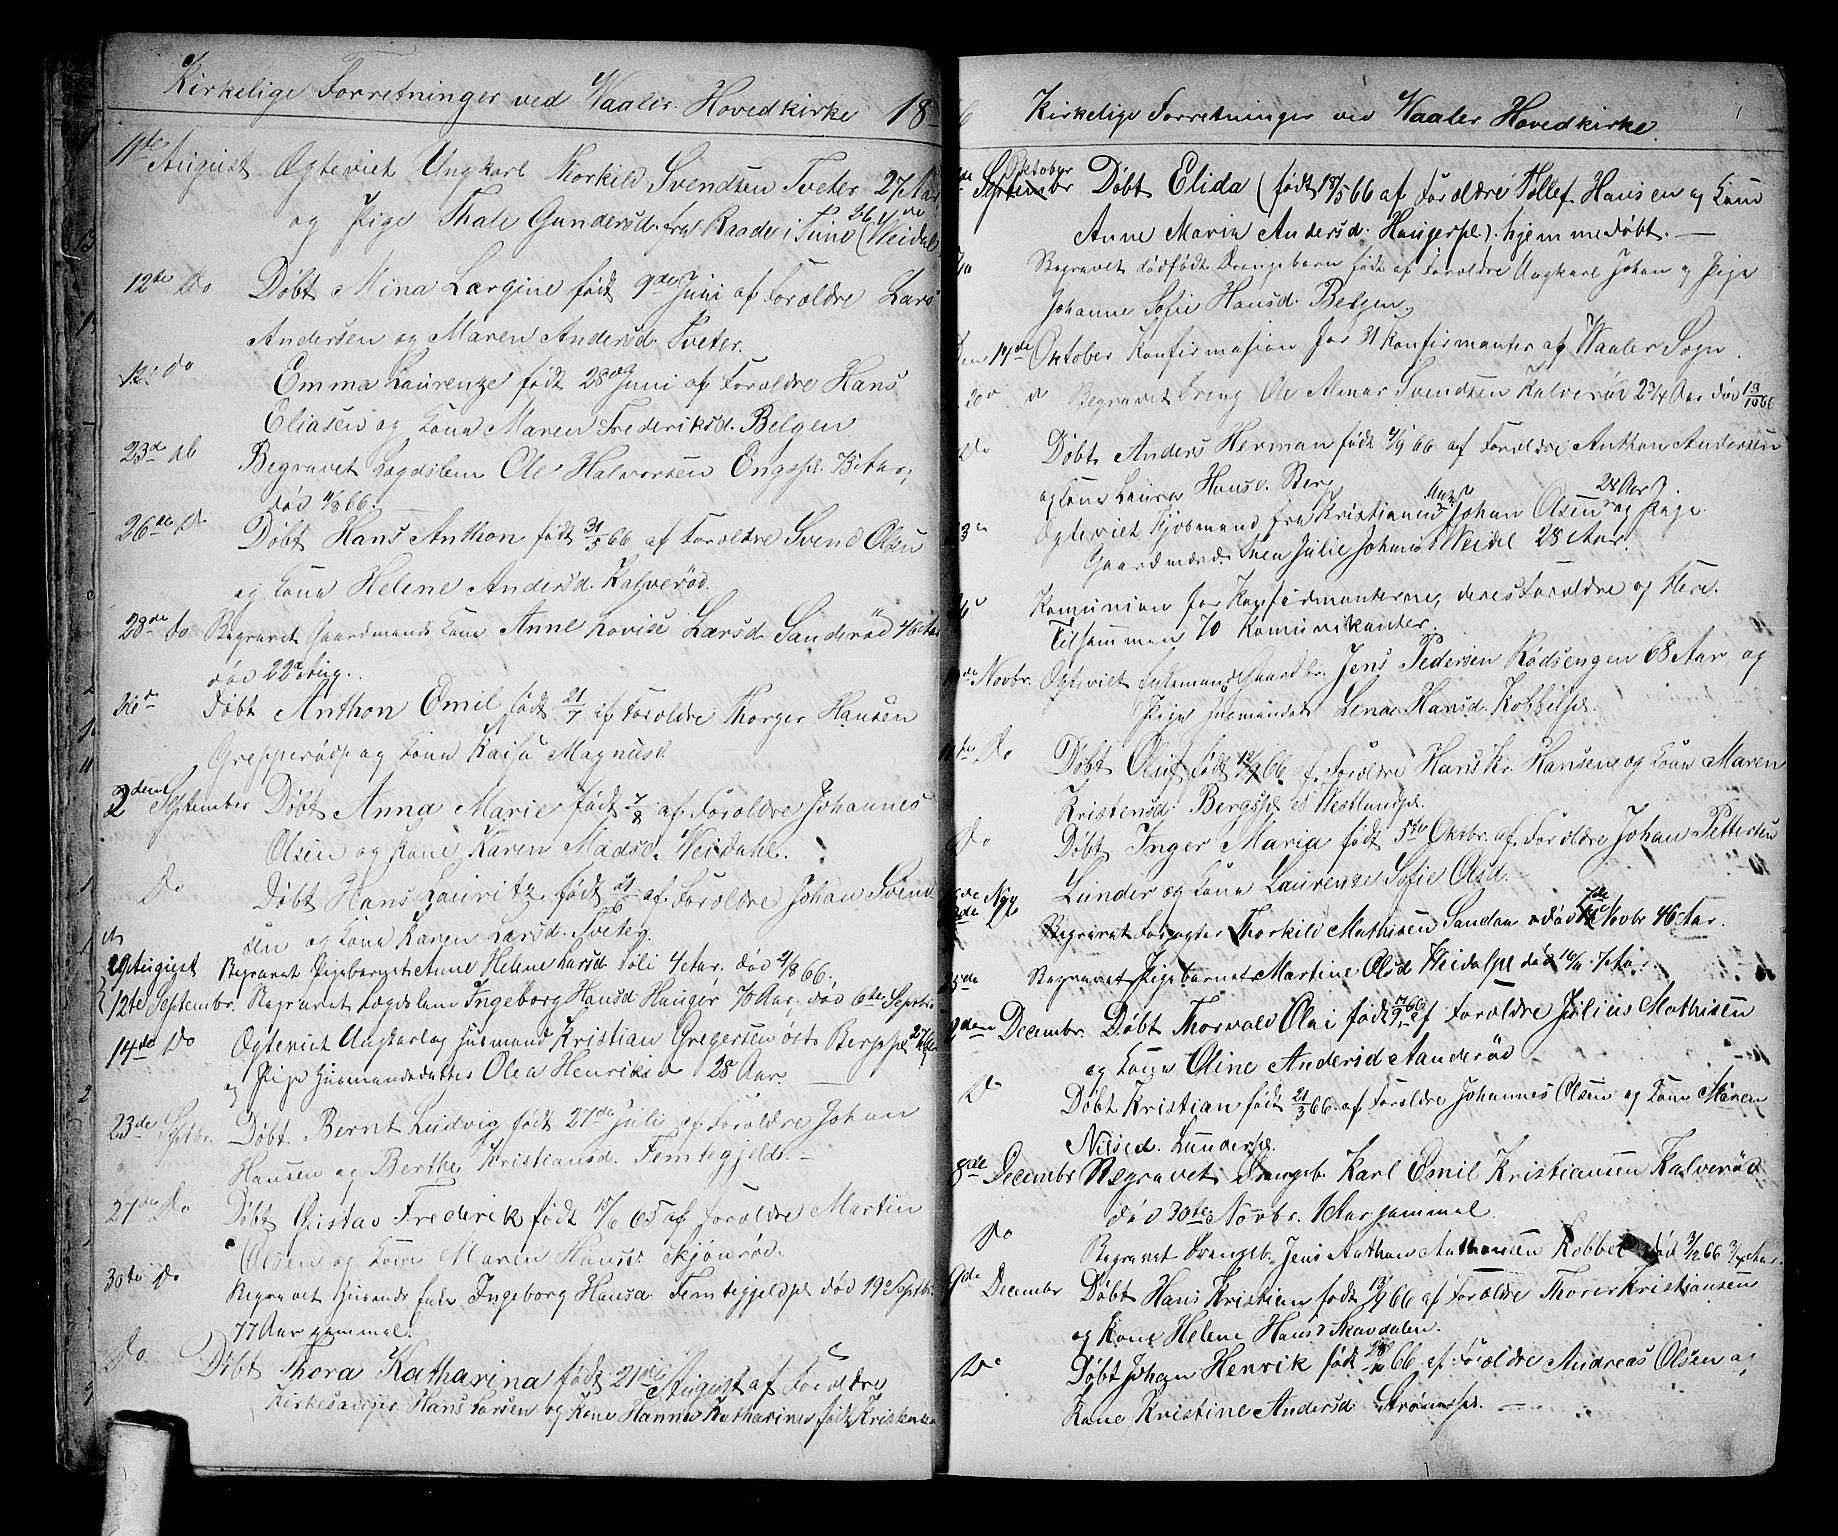 Kirkelige Forretninger ved Waaler Hovedkirke 18
11te August Ægteviet Ungkarl Thorkild Svendsen Tveter 27 Aar
og Pige Thale Gundersd. fra Raade i Tune (Weidal) 26 Aar
12te Do Døbt Mina Lærgine født 9de Juni af Forældre Lars
Andersen og Maren Andersd. Tveter.
12 do Emma Laurenze født 28de Juni af Forældre Hans
Eliasen og Kone Maren Frederiksd. Belgen
23de Begravet Lægdslem Ole Halvorsen Engspl. 75 Aar,
død 11/8 66.
26de Do Døbt Hans Anthon født 31/5 66 af Forældre Svend Olsen
og Kone Helene Andersd. Kalverød.
28de Do Begravet Gaardmands Kone Anne Lovise Larsd. Sanderød 46 Aar
død 22de Aug.
Døbt Anthon Emil født 21/7 af Forældre Thorger Hansen
Grepperødp og Kone Kaisa Magnusd.
2den September Døbt Anna Marie født 7/8 af Forældre Johannes
Olsen og Kone Karen Madsd. Weidahl.
Do Døbt Hans Lauritz født 21/6 af Forældre Johan Svend
sen og Kone Karen Larsd. Tveter.
29 August Begravet Pigebarnet Anne Helene Larsd. 4 Aar. død 21/8 66.
12te Septembr. Begravet Lægdslem Ingeborg Hansd. Haugør 70 Aar, død 6te Septbr
14de Do Ægteviet Ungkarl og Husmand Kristian Gregersen østr Bergspl 27 Aar
og Pige Husmandsdatter Olea Henriksd 28 Aar.
23de Septbr. Døbt Bernt Ludvig født 27de Juli af Forældre Johan
Hansen og Berthe Kristiansd. Femtegjeld.
27de Do Døbt Gustav Frederik født 17/6 65 af Forældre Martin
Olsen og Kone Maren Hansd. Skjønrød.
30te Do Begravet Husmands Enke Ingeborg Hansd. Femtegjeldpl død 19de Septbr.
77 Aar gammel.
Do. Døbt Thora Katharina født 21de August af Forældre
Kirkesanger Hans Larsen og Kone Hanna Katharine født Kristensen
66 Kirkelige Forretninger ved Waaler Hovedkirke.
Oktober
Septembr Døbt Elida (født 18/5 66 af Forældre Tollef Hansen og Kone
Anne Maria Andersd. Haugerpl.) hjemmedøbt.
Begravet dødfødt Drengebarn født af Forældre Ungkarl Johan og Pige
Johanne Sofie Hansd. Belgen,
Den 14de Oktober Konfirmasion for 31 Konfirmanter af Waaler Sogn
Begravet Dreng Ole Almar Svendsen Kalverød 2 3/4 Aar død 13/10 66
Do Døbt Anders Herman født 4/9 66 af Forældre Anthon Andersen
og Kone Laura Hansd.
Ægteviet Kjøbmand fra Kristiania Johan Olsen 28 Aar og Pige
Gaardmandsd. Julie Johansd Weidel 28 Aar.
Komunion for Konfirmanterne, deres Forældre og flere.
Tilsammen 70 Komunikanter.
Novbr. Ægteviet Enkemand Gaardbr. Jens Pedersen Rødsengen 68 Aar og
Pige Husmandsd. Lena Hansd. Kobbelpl.
Do Døbt Oluf født 12/9 66 af Forældre Hans Kr. Hansen og Kone Maren
Kristensd. Bergspl. Westlandpl.
Do Døbt Inger Maria født 5te Oktbr. af Forældre Johan Pettersen
Lunder og Kone Laurenze Sofie Olsd.
Begravet Forpagter Thorkild Mathisen Sandaa død 7de Novbr 46 Aar.
25de Begravet Pigebarnet Martine Olsd Weidalpl død 16/11 7 Aar.
2den Decembr. Døbt Thorvald Olai født af Forældre Julius Mathisen
og Kone Oline Andersd Aanderød
Do Døbt Kristian født 21/3 66 af Forældre Johannes Olsen og Kone Maren
Nilsd. Lunderpl.
8de Decembr Begravet Drengeb. Karl Emil Kristiansen Kalverød
død 30te Novbr. 1 Aar gammel.
Do Begravet Drengeb. Jens Anthon Anthonsen Kobbel død 3/12 66 3/4 Aar.
9de Decembr Døbt Hans Kristian født 13/9 66 af Forældre Thorer Kristiansen
og Kone Helene Hansd Skavdalen.
Do Døbt Johan Henrik født 28/10 66 af Forældre Andreas Olsen og
Kone Kristine Andersd. Strømspl.